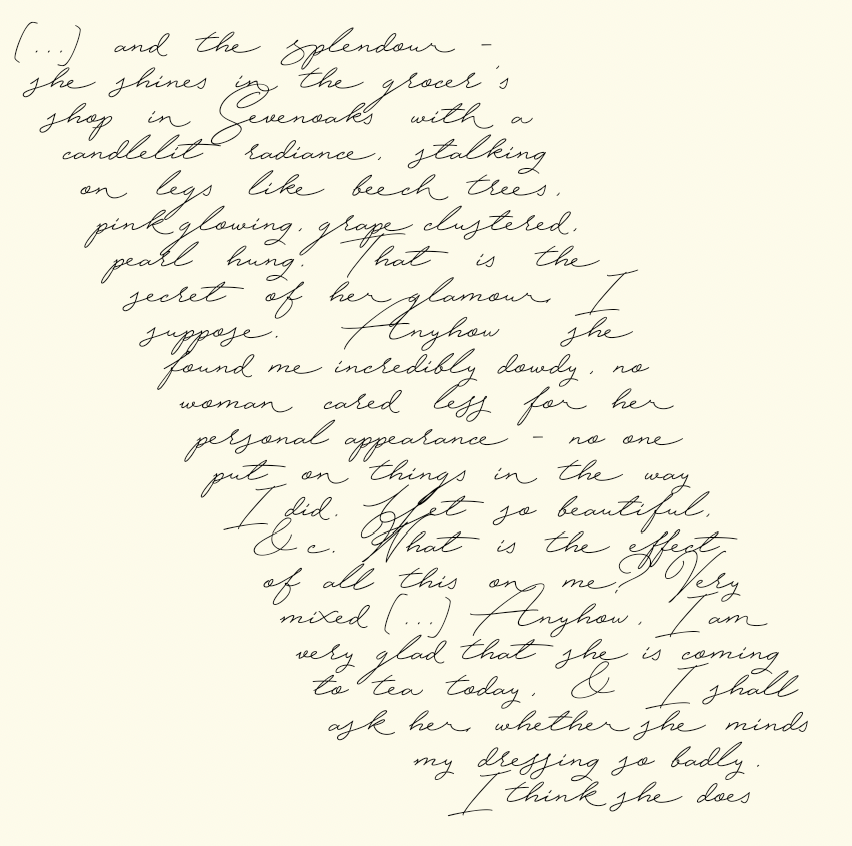 (...) and the splendour -
she shines in the grocer's
shop in Sevenoaks with a
candlelit radiance, stalking
on legs like beech trees,
pink glowing, grape clustered,
pearl hung. That is the
secret of her glamour, I
suppose. Anyhow she
found me incredibly dowdy, no
woman cared less for her
personal appearance - no one
put on things in the way
I did. Yet so beautiful,
&c. What is the effect
of all this on me? Very
mixed (...) Anyhow, I am
very glad that she is coming
to tea today, & I shall
ask her, whether she minds
my dressing so badly.
I think she does